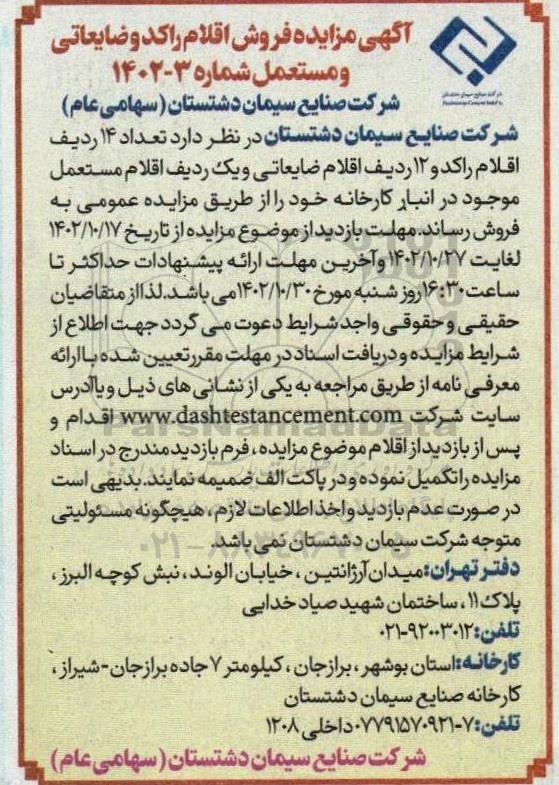 آگهی مزایده فروش اقلام راکد و ضایعاتی
و مستعمل شماره ۳-۱۴۰۲
شرکت صنایع سیمان دشتستان (سهامی عام)
شرکت صنایع سیمان دشتستان
Dashtestan Cement Indus
شرکت صنایع سیمان دشتستان در نظر دارد تعداد ۱۴ ردیف
اقلام راکد و ۱۲ ردیف اقلام ضایعاتی و یک ردیف اقلام مستعمل
موجود در انبار کارخانه خود را از طریق مزایده عمومی به
فروش رساند. مهلت بازدید از موضوع مزایده از تاریخ ۱۴۰۲/۱۰/۱۷
لغایت ۱۴۰۲/۱۰/۲۷ و آخرین مهلت ارائه پیشنهادات حداکثر تا
ساعت ۱۶:۳۰ روز شنبه مورخ ۱۴۰۲/۱۰/۳۰ می باشد. لذا از متقاضیان
حقیقی و حقوقی واجد شرایط دعوت می گردد جهت اطلاع از
شرایط مزایده و دریافت اسناد در مهلت مقرر تعیین شده با ارائه
معرفی نامه از طریق مراجعه به یکی از نشانی های ذیل و یا آدرس
سایت شرکت www.dashtestancement.com اقدام و
پس از بازدید از اقلام موضوع مزایده ، فرم بازدید مندرج در اسناد
مزایده را تکمیل نموده و در پاکت الف ضمیمه نمایند. بدیهی است
در صورت عدم بازدید و اخذ اطلاعات لازم ، هیچگونه مسئولیتی
متوجه شرکت سیمان دشتستان نمی باشد.
دفتر تهران: میدان آرژانتین ، خیابان الوند ، نبش کوچه البرز ،
پلاک ۱۱ ، ساختمان شهید صیاد خدایی
تلفن: ۹۲۰۰۳۰۱۲-۰۲۱
کارخانه: استان بوشهر ، برازجان ، کیلومتر ۷ جاده برازجان - شیراز ،
کارخانه صنایع سیمان دشتستان
تلفن: ۷-۰۷۷۹۱۵۷۰۹۲۱ داخلی ۱۲۰۸
شرکت صنایع سیمان دشتستان (سهامی عام)
ParsNamadData
۰۲۱-۸۸۳۴۹۶۷۰-۵